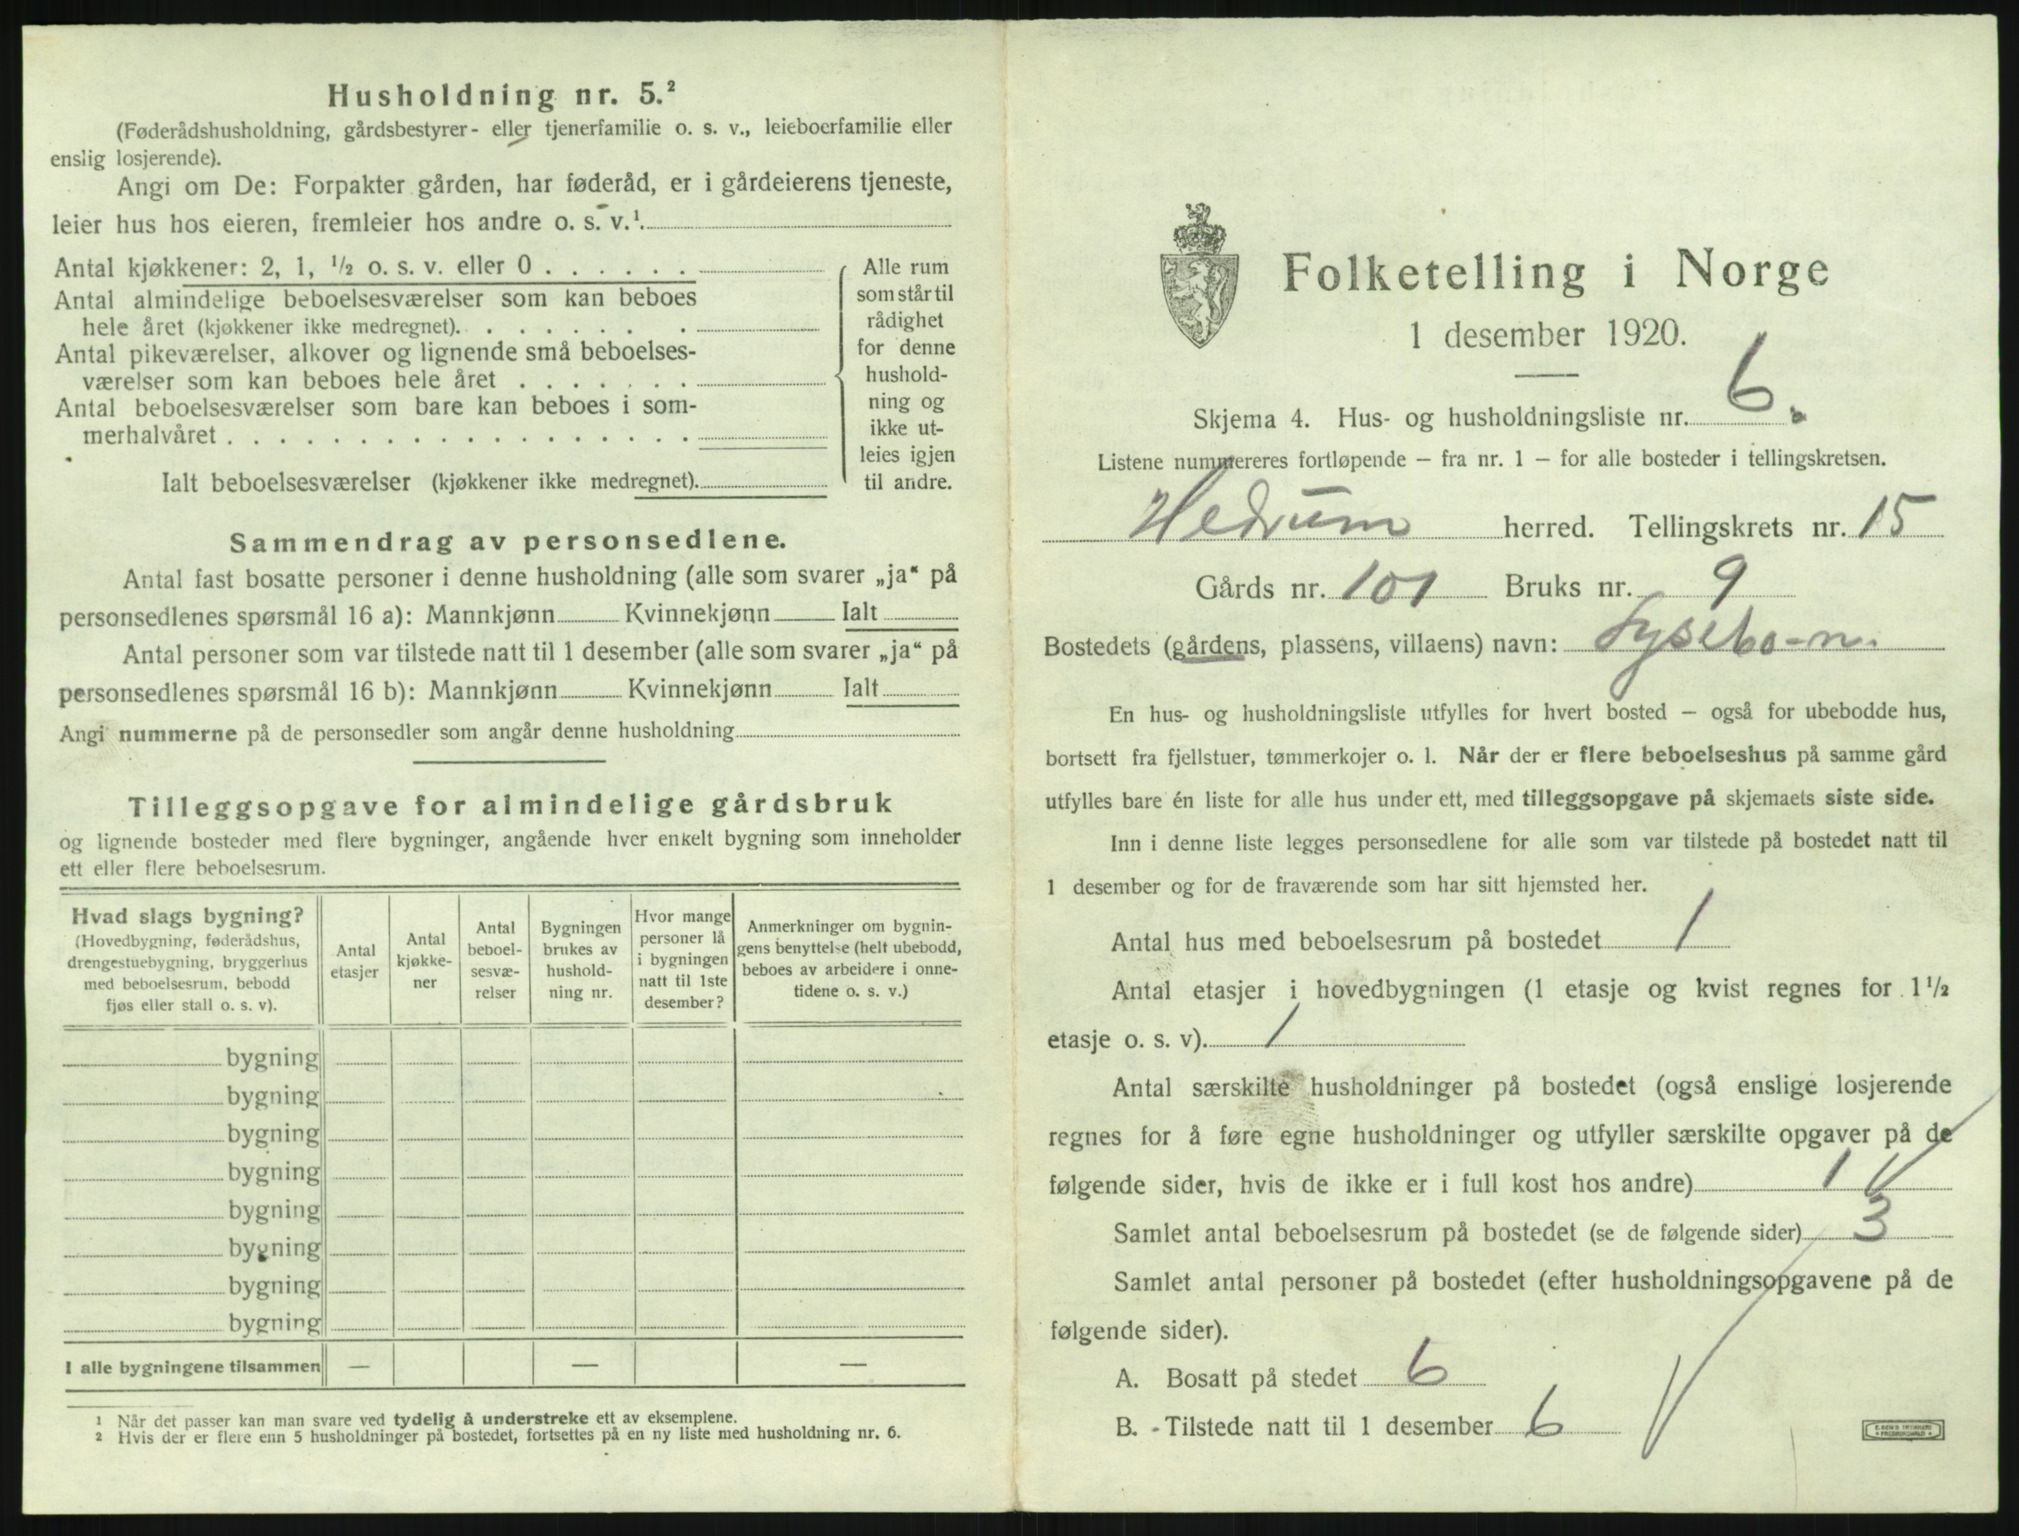 Husholdning nr. 5.²
(Føderådshusholdning, gårdsbestyrer- eller tjenerfamilie o. s. v., leieboerfamilie eller
enslig losjerende).
Angi om De: Forpakter gården, har føderåd, er i gårdeierens tjeneste,
leier hus hos eieren, fremleier hos andre o. s. v.¹.
Antal kjøkkener: 2, 1, ½ o. s. v. eller 0 . . . . . .
Antal almindelige beboelsesværelser som kan beboes
hele året (kjøkkener ikke medregnet). . . . . . . .
Antal pikeværelser, alkover og lignende små beboelses-
værelser som kan beboes hele året . . . . . . .
Antal beboelsesværelser som bare kan beboes i som-
merhalvåret . . . . . . . . . . . . . . . . . .
Ialt beboelsesværelser (kjøkkener ikke medregnet).
Alle rum
som står til
rådighet
for denne
hushold-
ning og
ikke ut-
leies igjen
til andre.
Sammendrag av personsedlene.
Antal fast bosatte personer i denne husholdning (alle som svarer „ja“ på
personsedlenes spørsmål 16 a): Mannkjønn Kvinnekjønn Ialt
Antal personer som var tilstede natt til 1 desember (alle som svarer „ja“ på
personsedlenes spørsmål 16 b): Mannkjønn Kvinnekjønn Ialt
Angi nummerne på de personsedler som angår denne husholdning
Tilleggsopgave for almindelige gårdsbruk
og lignende bosteder med flere bygninger, angående hver enkelt bygning som inneholder
ett eller flere beboelsesrum.
Hvad slags bygning?
(Hovedbygning, føderådshus,
drengestuebygning, bryggerhus
med beboelsesrum, bebodd
fjøs eller stall o. s. v).
Antal
etasjer
Antal
kjøkke-
ner
Antal
beboel-
sesvæ-
relser
Bygningen
brukes av
hushold-
ning nr.
Hvor mange
personer lå
i bygningen
natt til 1ste
desember?
Anmerkninger om bygnin-
gens benyttelse (helt ubebodd,
beboes av arbeidere i onne-
tidene o. s. v.)
bygning
bygning
bygning
bygning
bygning
bygning
bygning
bygning
I alle bygningene tilsammen — — —
¹ Når det passer kan man svare ved tydelig å understreke ett av eksemplene.
² Hvis der er flere enn 5 husholdninger på bostedet, fortsettes på en ny liste med husholdning nr. 6.
Folketelling i Norge
1 desember 1920.
Skjema 4. Hus- og husholdningsliste nr. 6.
Listene nummereres fortløpende – fra nr. 1 – for alle bosteder i tellingskretsen.
Hedrum herred. Tellingskrets nr. 15
Gårds nr. 101 Bruks nr. 9
Bostedets (gårdens, plassens, villaens) navn: Lysebo-n.
En hus- og husholdningsliste utfylles for hvert bosted – også for ubebodde hus,
bortsett fra fjellstuer, tømmerkojer o. l. Når der er flere beboelseshus på samme gård
utfylles bare én liste for alle hus under ett, med tilleggsopgave på skjemaets siste side.
Inn i denne liste legges personsedlene for alle som var tilstede på bostedet natt til
1 desember og for de fraværende som har sitt hjemsted her.
Antal hus med beboelsesrum på bostedet 1
Antal etasjer i hovedbygningen (1 etasje og kvist regnes for 1½
etasje o. s. v). 1
Antal særskilte husholdninger på bostedet (også enslige losjerende
regnes for å føre egne husholdninger og utfyller særskilte opgaver på de
følgende sider, hvis de ikke er i full kost hos andre) 1
Samlet antal beboelsesrum på bostedet (se de følgende sider) 3
Samlet antal personer på bostedet (efter husholdningsopgavene på de
følgende sider).
A. Bosatt på stedet 6
B. Tilstede natt til 1 desember 6